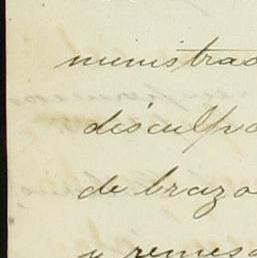 ministras
disculpa
de brazo
y remes